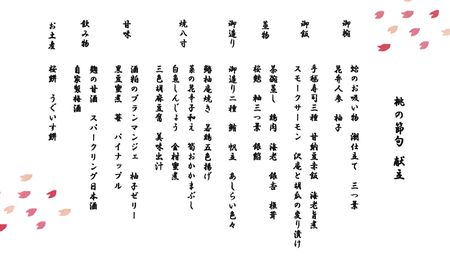 桃の節句　献立
御椀　蛤のお吸い物　潮仕立て　三つ葉
昆布人参　柚子
御飯　手毬寿司三種　甘納豆赤飯　海老旨煮
スモークサーモン　沢庵と胡瓜の炙り漬け
蓋物　茶碗蒸し　鶏肉　海老　銀杏　椎茸
桜麩　軸三つ葉　銀餡
御造り　御造り二種　鮪　帆立　あしらい色々
焼八寸　鰆柚庵焼き　若鶏五色揚げ
菜の花辛子和え　筍おかかまぶし
白魚しんじょう　金柑蜜煮
三色胡麻豆腐　美味出汁
甘味　酒粕のブランマンジェ　柚子ゼリー
黒豆蜜煮　苺　パイナップル
飲み物　麹の甘酒　スパークリング日本酒
自家製梅酒
お土産　桜餅　うぐいす餅